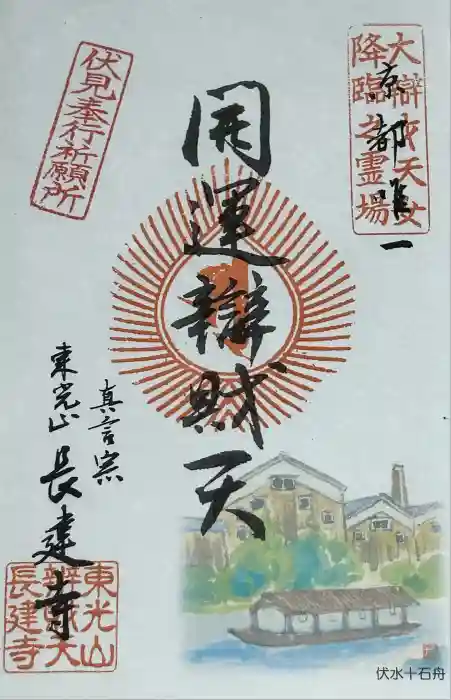 大辯才天女
降臨之霊場
京都唯一
伏見奉行祈願所
開運辯財天
真言宗
東光山 長建寺
東光山
辨財天
長建寺
伏水十石舟